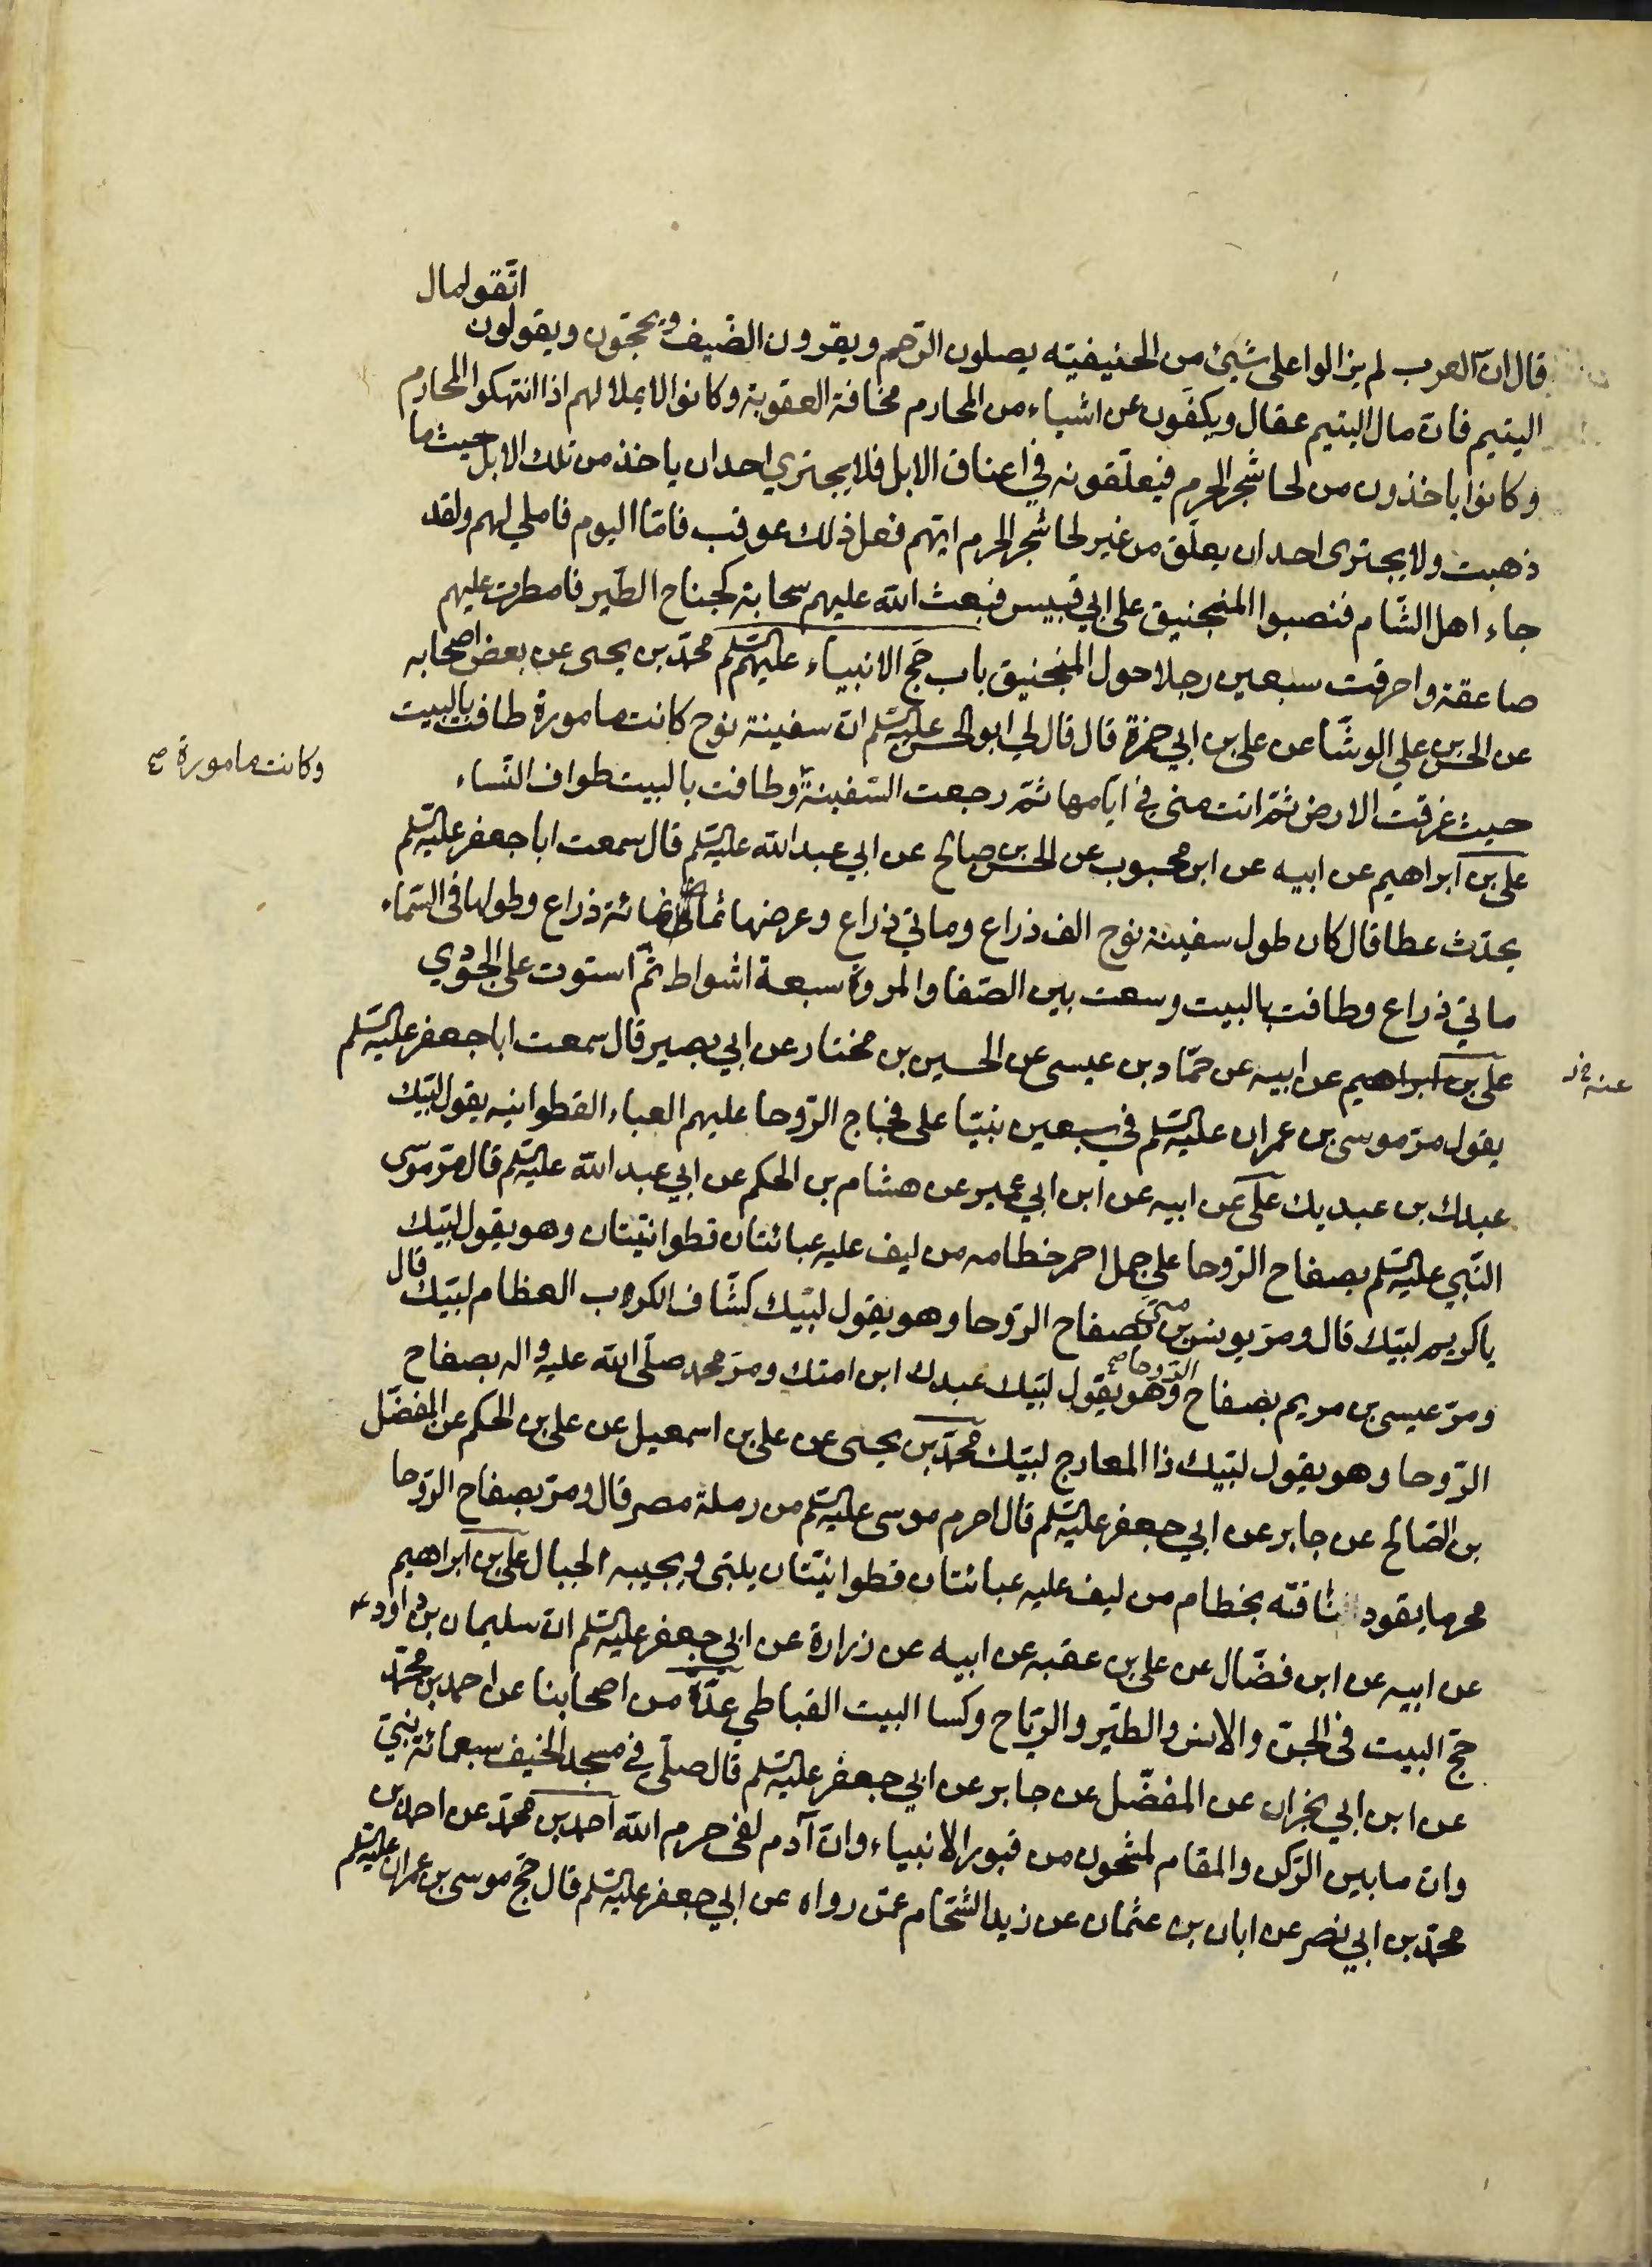 قال ان العرب لم يزالوا على شيئ من الحنيفيته يصلون الرّحم ويقرون الضّيف ويحجّون ويقولون اتّقو لمال
اليتيم فان مال اليتيم عقال ويكفّون عن اشياء من المحارم مخافة العقوبة وكانوا لا يملا لهم اذا انتهكوا المحارم
وكانوا ياخذون من لحا شجر الحرم فيعلّقونه في اعناق الابل فلا يجتري احد ان ياخذ من تلك الابل حيث ما
ذهبت ولا يجترى احد ان يعلّق من غير لحا شجر الحرم ايّهم فعل ذلك عوقب فامّا اليوم فاملي لهم ولقد
جاء اهل الشّام فنصبوا المنجنيق على ابي قبيس فبعث الله عليهم سحابة كجناح الطّير فامطرت عليهم
صاعقة واحرقت سبعين رجلا حول المنجنيق باب حجّ الانبياء عليهم السّلم محمّد بن يحيى عن بعض اصحابه
عن الحسن بن علي الوشّا عن على بن ابي حمزة قال قال لي ابو الحسن عليه السّلم ان سفينة نوح كانت مامورة طافت بالبيت
حيث غرقت الارض ثمّ اتت منى في ايّامها ثمّ رجعت السّفينة وطافت بالبيت طواف النّساء
وكانت مامورة صح
على بن ابراهيم عن ابيه عن ابن محبوب عن الحسن بن صالح عن ابي عبد الله عليه السّلم قال سمعت ابا جعفر عليه السّلم
يحدّث عطا قال كان طول سفينة نوح الف ذراع وماتي ذراع وعرضها ثمانمائة ذراع وطولها فى السّماء
ماتي ذراع وطافت بالبيت وسعت بين الصّفا والمروة سبعة اشواط ثمّ استوت على الجودي
على بن ابراهيم عن ابيه عن حمّاد بن عيسى عن الحسين بن مختار عن ابي بصير قال سمعت ابا جعفر عليه السّلم
يقول مرّ موسى بن عمران عليه السّلم في سبعين نبيّا على فجاج الرّوحا عليهم العباء القطوانيه يقول لبّيك
عبدك بن عبديك على عن ابيه عن ابن ابي عمير عن هشام بن الحكم عن ابي عبد الله عليه السّلم قال مرّ موسى
النّبي عليه السّلم بصفاح الرّوحا على جمل احمر خطامه من ليف عليه عبائتان قطوانيّتان وهو يقول لبّيك
يا كريم لبّيك قال ومرّ يونس بن متى بصفاح الرّوحا وهو يقول لبّيك كشّاف الكروب العظام لبّيك قال
ومرّ عيسى بن مريم بصفاح الرّوحا صح وهو يقول لبّيك عبدك ابن امتك ومرّ محمد صلّى الله عليه واله بصفاح
الرّوحا وهو يقول لبّيك ذا المعارج لبّيك محمّد بن يحيى عن على بن اسمعيل عن على بن الحكم عن المفضّل
بن الصّالح عن جابر عن ابي جعفر عليه السّلم قال احرم موسى عليه السّلم من رملة مصر قال ومرّ بصفاح الرّوحا
محرما يقود ناقته بخطام من ليف عليه عبائتان قطوانيّتان يلبّى ويجيبه الجبال على بن ابراهيم
عن ابيه عن ابن فضّال عن على بن عقبه عن ابيه عن زرارة عن ابي جعفر عليه السّلم ان سليمان بن داود ع
حجّ البيت فى الجنّ والانس والطّير والرّياح وكسا البيت القباطي عدّة من اصحابنا عن احمد بن محمّد
عن ابن ابي نجران عن المفضّل عن جابر عن ابي جعفر عليه السّلم قال صلّى في مسجد الخيف سبعمائة نبيّ
وان ما بين الرّكن والمقام لمشحون من قبور الانبياء وان آدم لفى حرم الله احمد بن محمّد عن احمد بن
محمّد بن ابي نصر عن ابان بن عثمان عن زيد الشّحّام عمّن رواه عن ابي جعفر عليه السّلم قال حجّ موسى بن عمران عليه السّلم